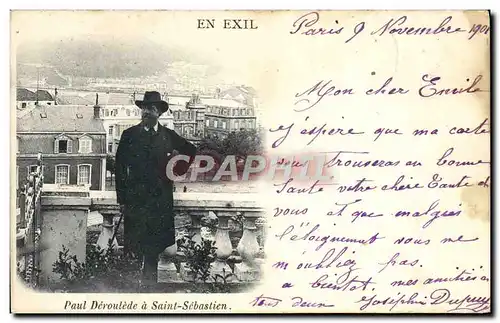 EN EXIL
Paris 9 Novembre 1901
Mon cher Emile
J'espère que ma carte
vous trouveras en bonne
Santé votre chère Tante et
vous et que malgré
l'éloignement vous ne
m'oubliez pas.
à bientôt, mes amitiés à
tous deux Joséphine Dupuy
CPARAMA
Paul Déroulède à Saint-Sébastien.